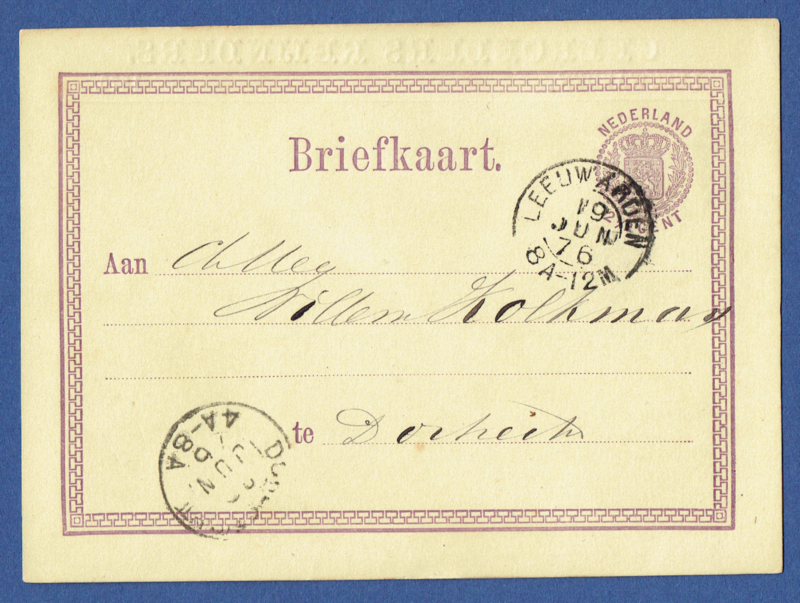 NEDERLAND
CENT
Briefkaart.
LEEUWARDEN
19
JUN
76
8A-12M
Aan
Willem Kolkman
te Dortrecht
4A-8A
JUN